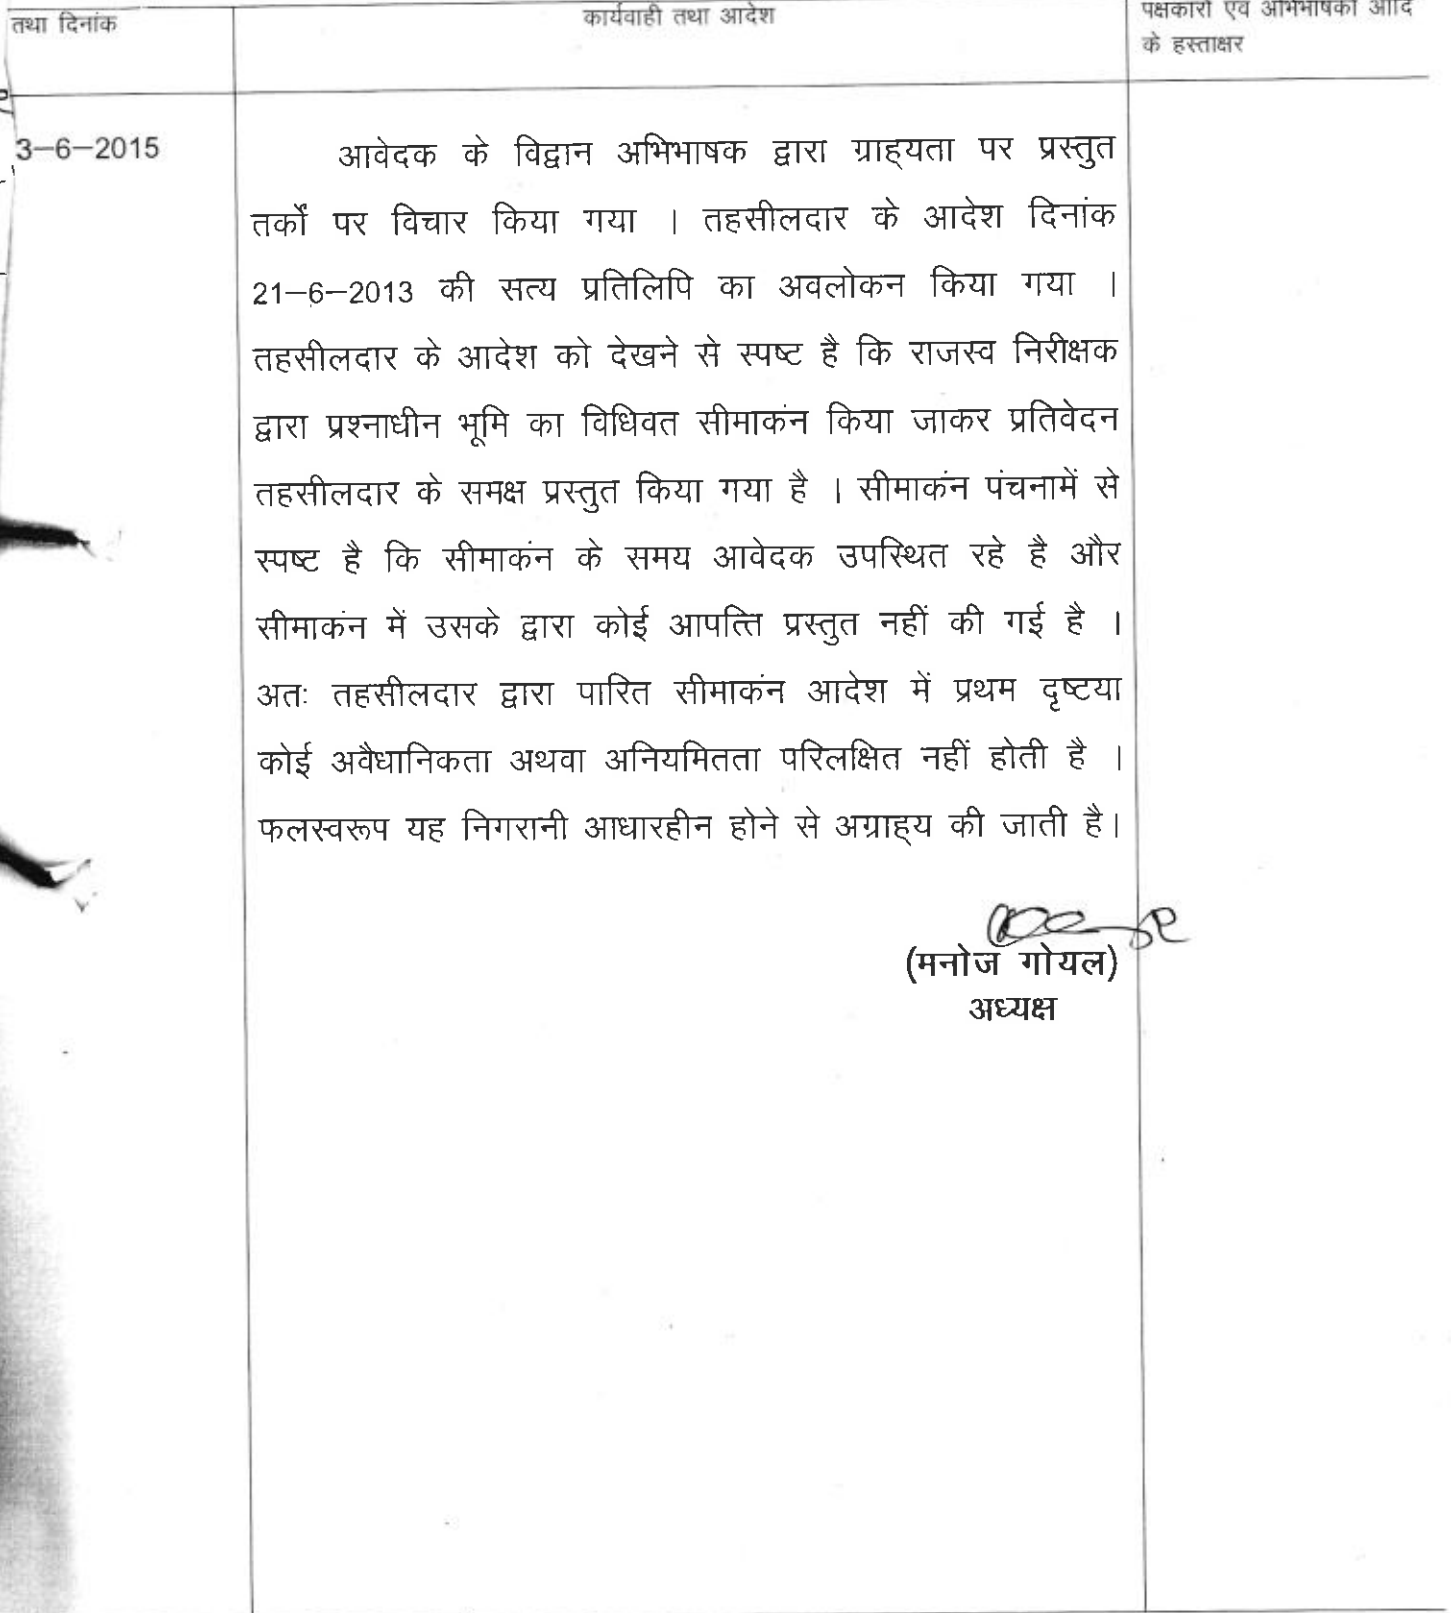 तथा दिनांक
कार्यवाही तथा आदेश
पक्षकारों एवं अभिभाषकों आदि
के हस्ताक्षर
3–6–2015
आवेदक के विद्वान अभिभाषक द्वारा ग्राह्यता पर प्रस्तुत
तर्कों पर विचार किया गया । तहसीलदार के आदेश दिनांक
21–6–2013 की सत्य प्रतिलिपि का अवलोकन किया गया ।
तहसीलदार के आदेश को देखने से स्पष्ट है कि राजस्व निरीक्षक
द्वारा प्रश्नाधीन भूमि का विधिवत सीमाकंन किया जाकर प्रतिवेदन
तहसीलदार के समक्ष प्रस्तुत किया गया है । सीमाकंन पंचनामें से
स्पष्ट है कि सीमाकंन के समय आवेदक उपस्थित रहे है और
सीमाकंन में उसके द्वारा कोई आपत्ति प्रस्तुत नहीं की गई है ।
अतः तहसीलदार द्वारा पारित सीमाकंन आदेश में प्रथम दृष्टया
कोई अवैधानिकता अथवा अनियमितता परिलक्षित नहीं होती है ।
फलस्वरूप यह निगरानी आधारहीन होने से अग्राह्य की जाती है।
(मनोज गोयल)
अध्यक्ष